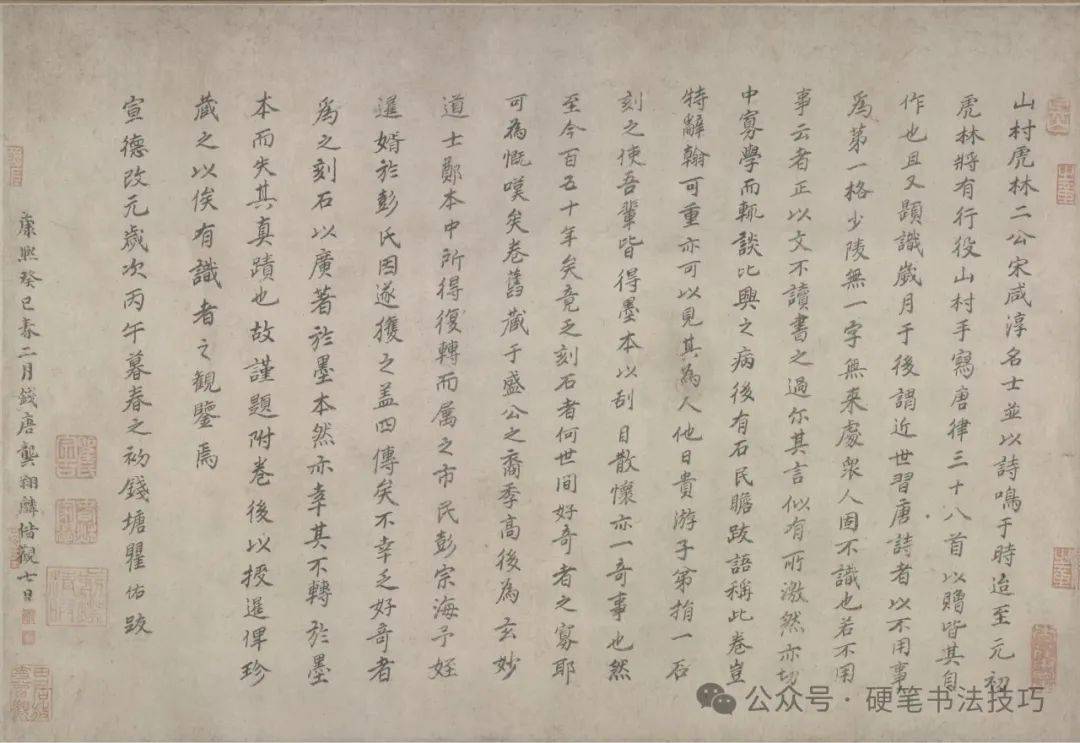 山村虎林二公宋咸淳名士並以詩鳴于時迨至元初
虎林將有行役山村手寫唐律三十八首以贈皆其自
作也且又題識歲月于後謂近世習唐詩者以不用事
為第一格少陵無一字無来處衆人固不識也若不用
事云者正以文不讀書之過尔其言似有所激然亦切
中寡學而輒談比興之病後有石民瞻跋語稱此卷豈
特辭翰可重亦可以見其為人他日貴游子弟捐一石
刻之使吾輩皆得墨本以刮目散懷亦一奇事也然
至今百五十年矣竟乏刻石者何世間好奇者之寡耶
可為慨嘆矣卷舊藏于盛公之裔季高後為玄妙
道士鄭本中所得復轉而属之市民彭宗海予姪
暹婿於彭氏因遂獲之盖四傳矣不幸乏好奇者
為之刻石以廣著於墨本然亦幸其不轉於墨
本而失其真蹟也故謹題附卷後以授暹俾珍
藏之以俟有識者之観鑒焉
宣德改元歲次丙午暮春之初錢塘瞿佑跋
康熙癸巳春二月錢唐龔翔麟借觀七日
公众号·硬笔书法技巧